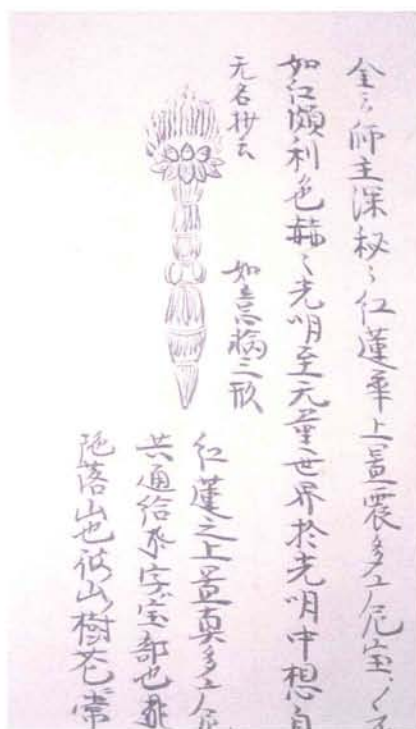 金云師主深秘〻紅蓮華上置震多尼宝〻〻
如紅頗利色赫〻光明至无量世界於光明中想自
无名抄云
如意輪三形
紅蓮之上置真多尼
共通給字宝部也
陁落山也彼山樹花常